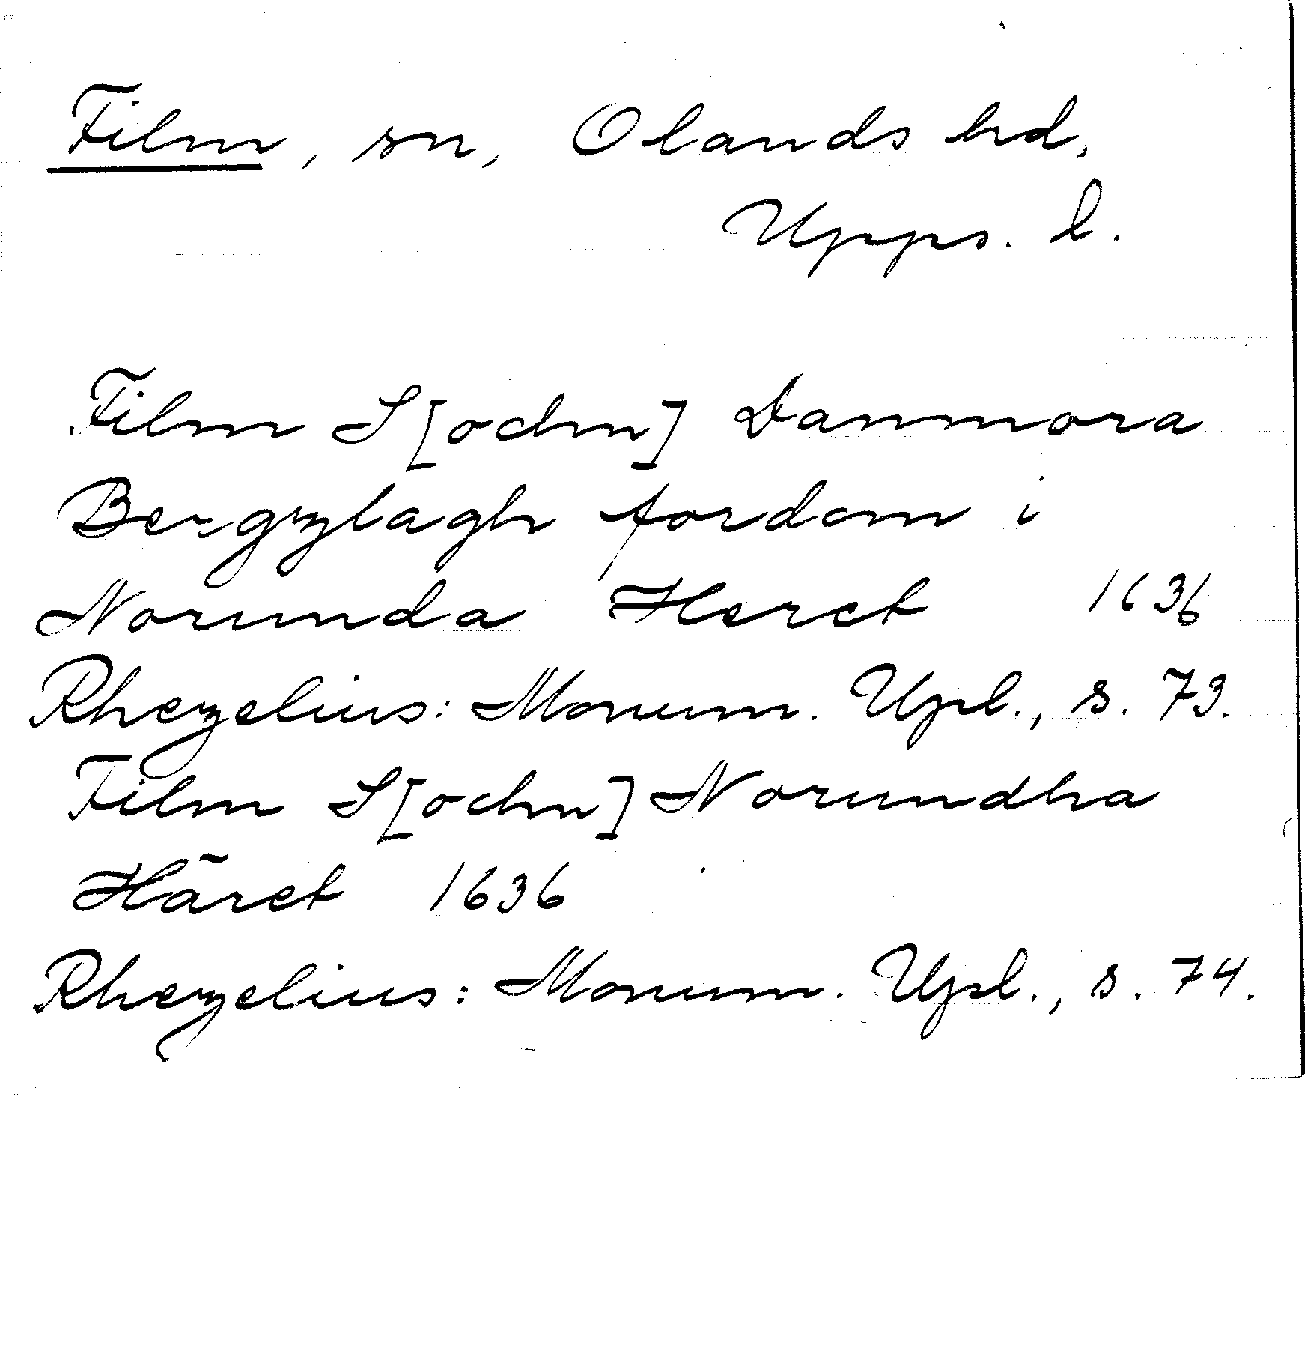 Film, sn, Olands hd,
Upps. l.
Film S[ochn] Danmora
Bergzlagh fordom i
Norunda Heret 1636
Rhezelius: Monum. Upl., s. 73.
Film S[ochn] Norundha
Häret 1636
Rhezelius: Monum. Upl., s. 74.